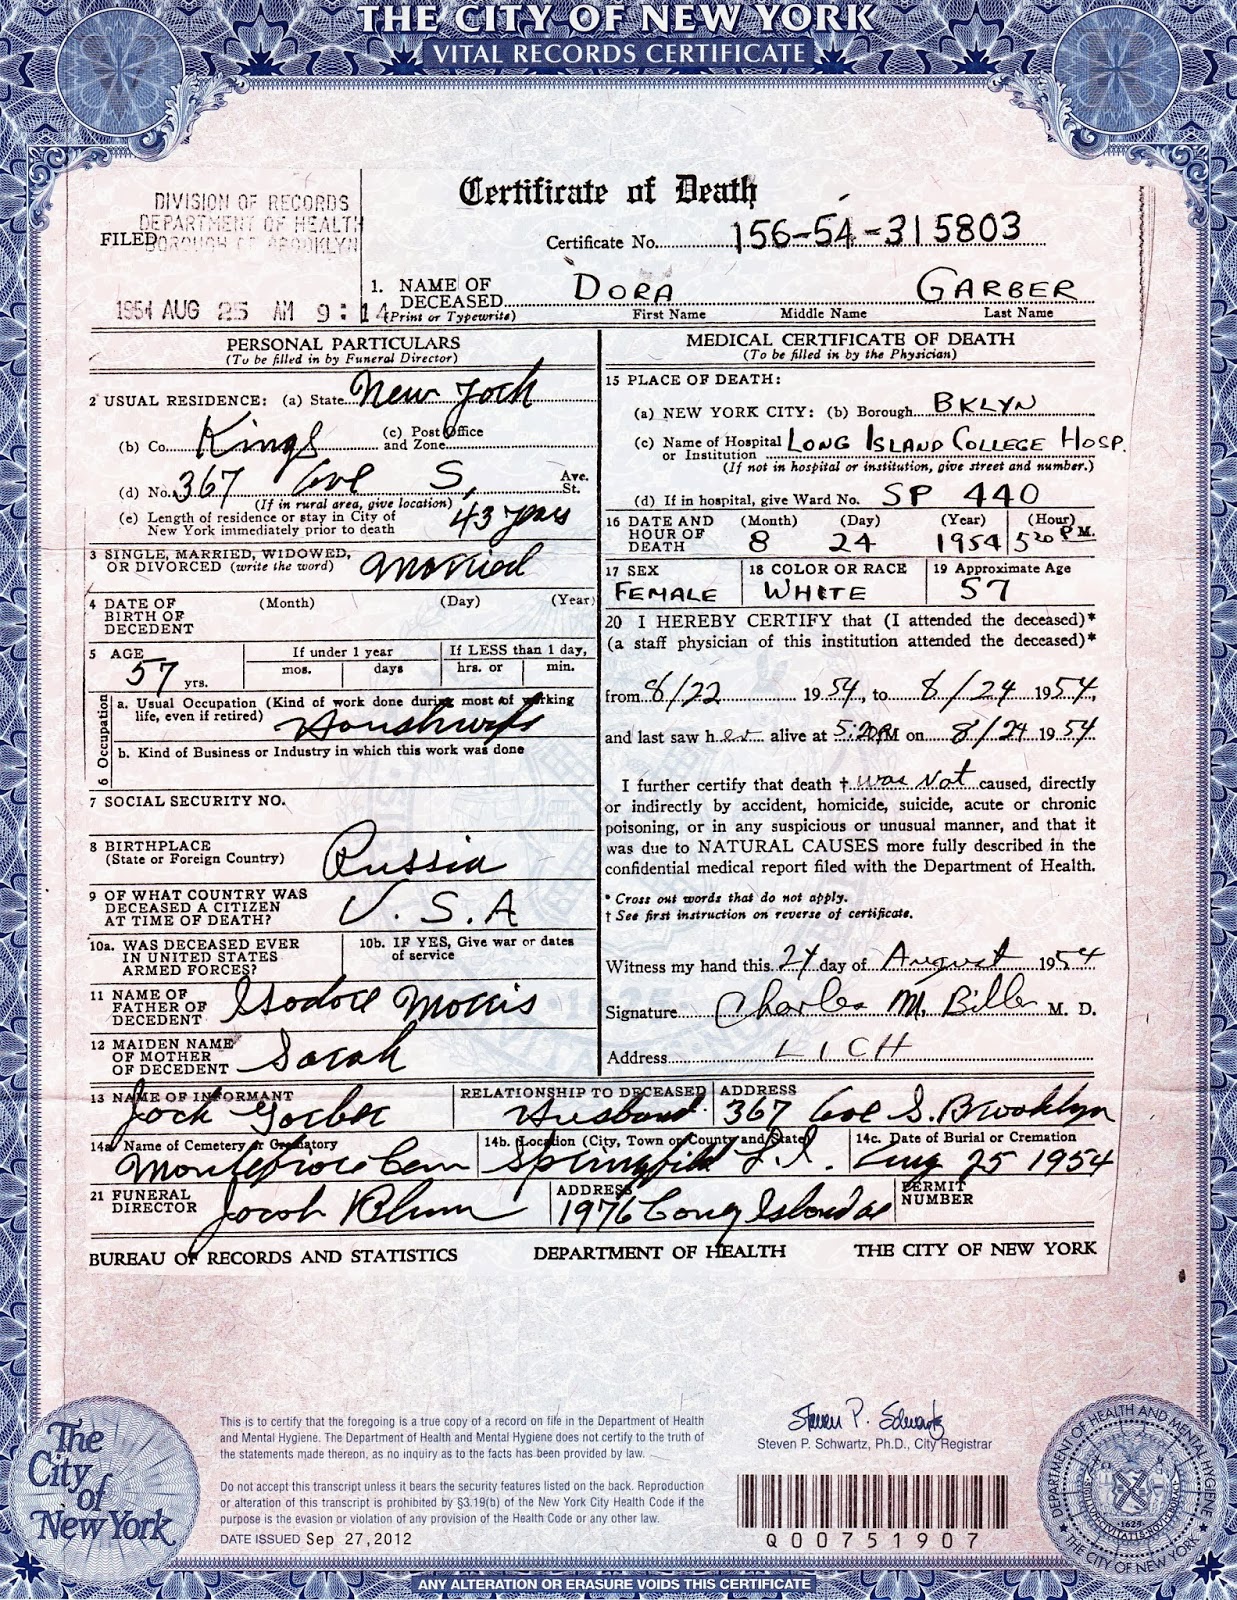 THE CITY OF NEW YORK
VITAL RECORDS CERTIFICATE
Certificate of Death
DIVISION OF RECORDS
DEPARTMENT OF HEALTH
FILED BOROUGH OF BROOKLYN
1954 AUG 25 AM 9:14
Certificate No. 156-54-315803
1. NAME OF DECEASED DORA GARBER
(Print or Typewrite) First Name Middle Name Last Name
PERSONAL PARTICULARS
(To be filled in by Funeral Director)
2 USUAL RESIDENCE: (a) State New York
(b) Co. Kings (c) Post Office and Zone
(d) No. 367 Ave S, Ave. St.
(If in rural area, give location)
(e) Length of residence or stay in City of
New York immediately prior to death 43 years
3 SINGLE, MARRIED, WIDOWED,
OR DIVORCED (write the word) Married
4 DATE OF BIRTH OF DECEDENT (Month) (Day) (Year)
5 AGE 57 yrs. If under 1 year mos. days If LESS than 1 day, hrs. or min.
6 Occupation
a. Usual Occupation (Kind of work done during most of working
life, even if retired) Housewife
b. Kind of Business or Industry in which this work was done
7 SOCIAL SECURITY NO.
8 BIRTHPLACE
(State or Foreign Country) Russia
9 OF WHAT COUNTRY WAS
DECEASED A CITIZEN
AT TIME OF DEATH? U.S.A
10a. WAS DECEASED EVER
IN UNITED STATES
ARMED FORCES?
10b. IF YES, Give war or dates
of service
11 NAME OF
FATHER OF
DECEDENT Isodore Morris
12 MAIDEN NAME
OF MOTHER
OF DECEDENT Sarah
MEDICAL CERTIFICATE OF DEATH
(To be filled in by the Physician)
15 PLACE OF DEATH:
(a) NEW YORK CITY: (b) Borough BKLYN
(c) Name of Hospital or Institution LONG ISLAND COLLEGE HOSP.
(If not in hospital or institution, give street and number.)
(d) If in hospital, give Ward No. SP 440
16 DATE AND HOUR OF DEATH (Month) 8 (Day) 24 (Year) 1954 (Hour) 5 20 P.M.
17 SEX FEMALE 18 COLOR OR RACE WHITE 19 Approximate Age 57
20 I HEREBY CERTIFY that (I attended the deceased)*
(a staff physician of this institution attended the deceased)*
from 8/22 1954, to 8/24 1954,
and last saw her alive at 5:20 PM on 8/24 1954
I further certify that death † was not caused, directly
or indirectly by accident, homicide, suicide, acute or chronic
poisoning, or in any suspicious or unusual manner, and that it
was due to NATURAL CAUSES more fully described in the
confidential medical report filed with the Department of Health.
* Cross out words that do not apply.
† See first instruction on reverse of certificate.
Witness my hand this 24 day of August 1954
Signature Charles M. Biller M. D.
Address LICH
13 NAME OF INFORMANT Jack Garber RELATIONSHIP TO DECEASED Husband ADDRESS 367 Ave S. Brooklyn
14a. Name of Cemetery or Crematory Montefiore Cem 14b. Location (City, Town or County and State) Springfield L.I. 14c. Date of Burial or Cremation Aug 25 1954
21 FUNERAL DIRECTOR Jacob Blum ADDRESS 1976 Coney Island Ave PERMIT NUMBER
BUREAU OF RECORDS AND STATISTICS DEPARTMENT OF HEALTH THE CITY OF NEW YORK
The City of New York
This is to certify that the foregoing is a true copy of a record on file in the Department of Health
and Mental Hygiene. The Department of Health and Mental Hygiene does not certify to the truth of
the statements made thereon, as no inquiry as to the facts has been provided by law.
Do not accept this transcript unless it bears the security features listed on the back. Reproduction
or alteration of this transcript is prohibited by §3.19(b) of the New York City Health Code if the
purpose is the evasion or violation of any provision of the Health Code or any other law.
DATE ISSUED Sep 27, 2012
Steven P. Schwartz
Steven P. Schwartz, Ph.D., City Registrar
Q00751907
DEPARTMENT OF HEALTH AND MENTAL HYGIENE
THE CITY OF NEW YORK
1625
ANY ALTERATION OR ERASURE VOIDS THIS CERTIFICATE